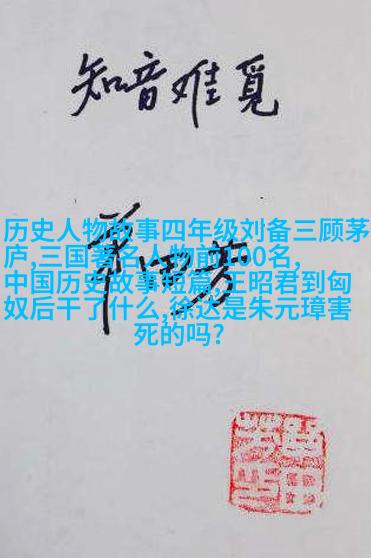 知音难觅
历史人物故事四年级刘备三顾茅
庐,三国著名人物前100名,
中国历史故事短篇,王昭君到匈
奴后干了什么,徐达是朱元璋害
死的吗?